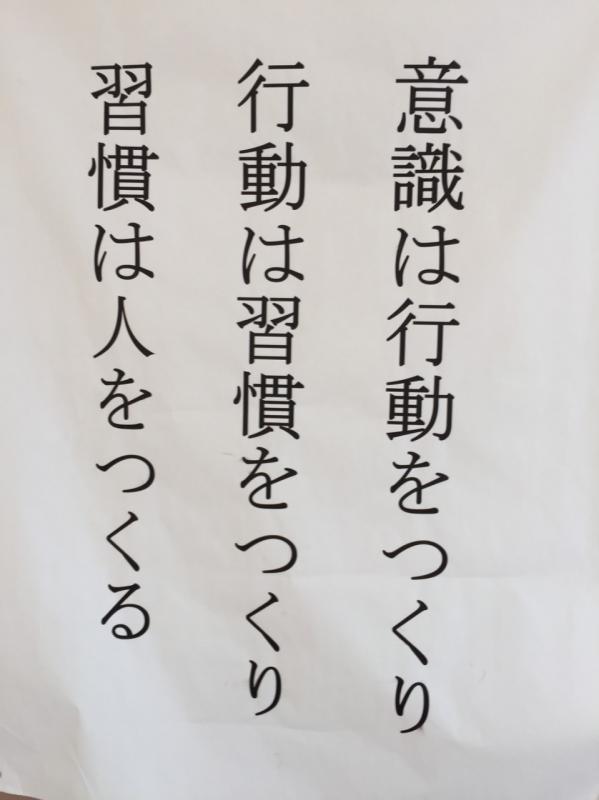 意識は行動をつくり
行動は習慣をつくり
習慣は人をつくる